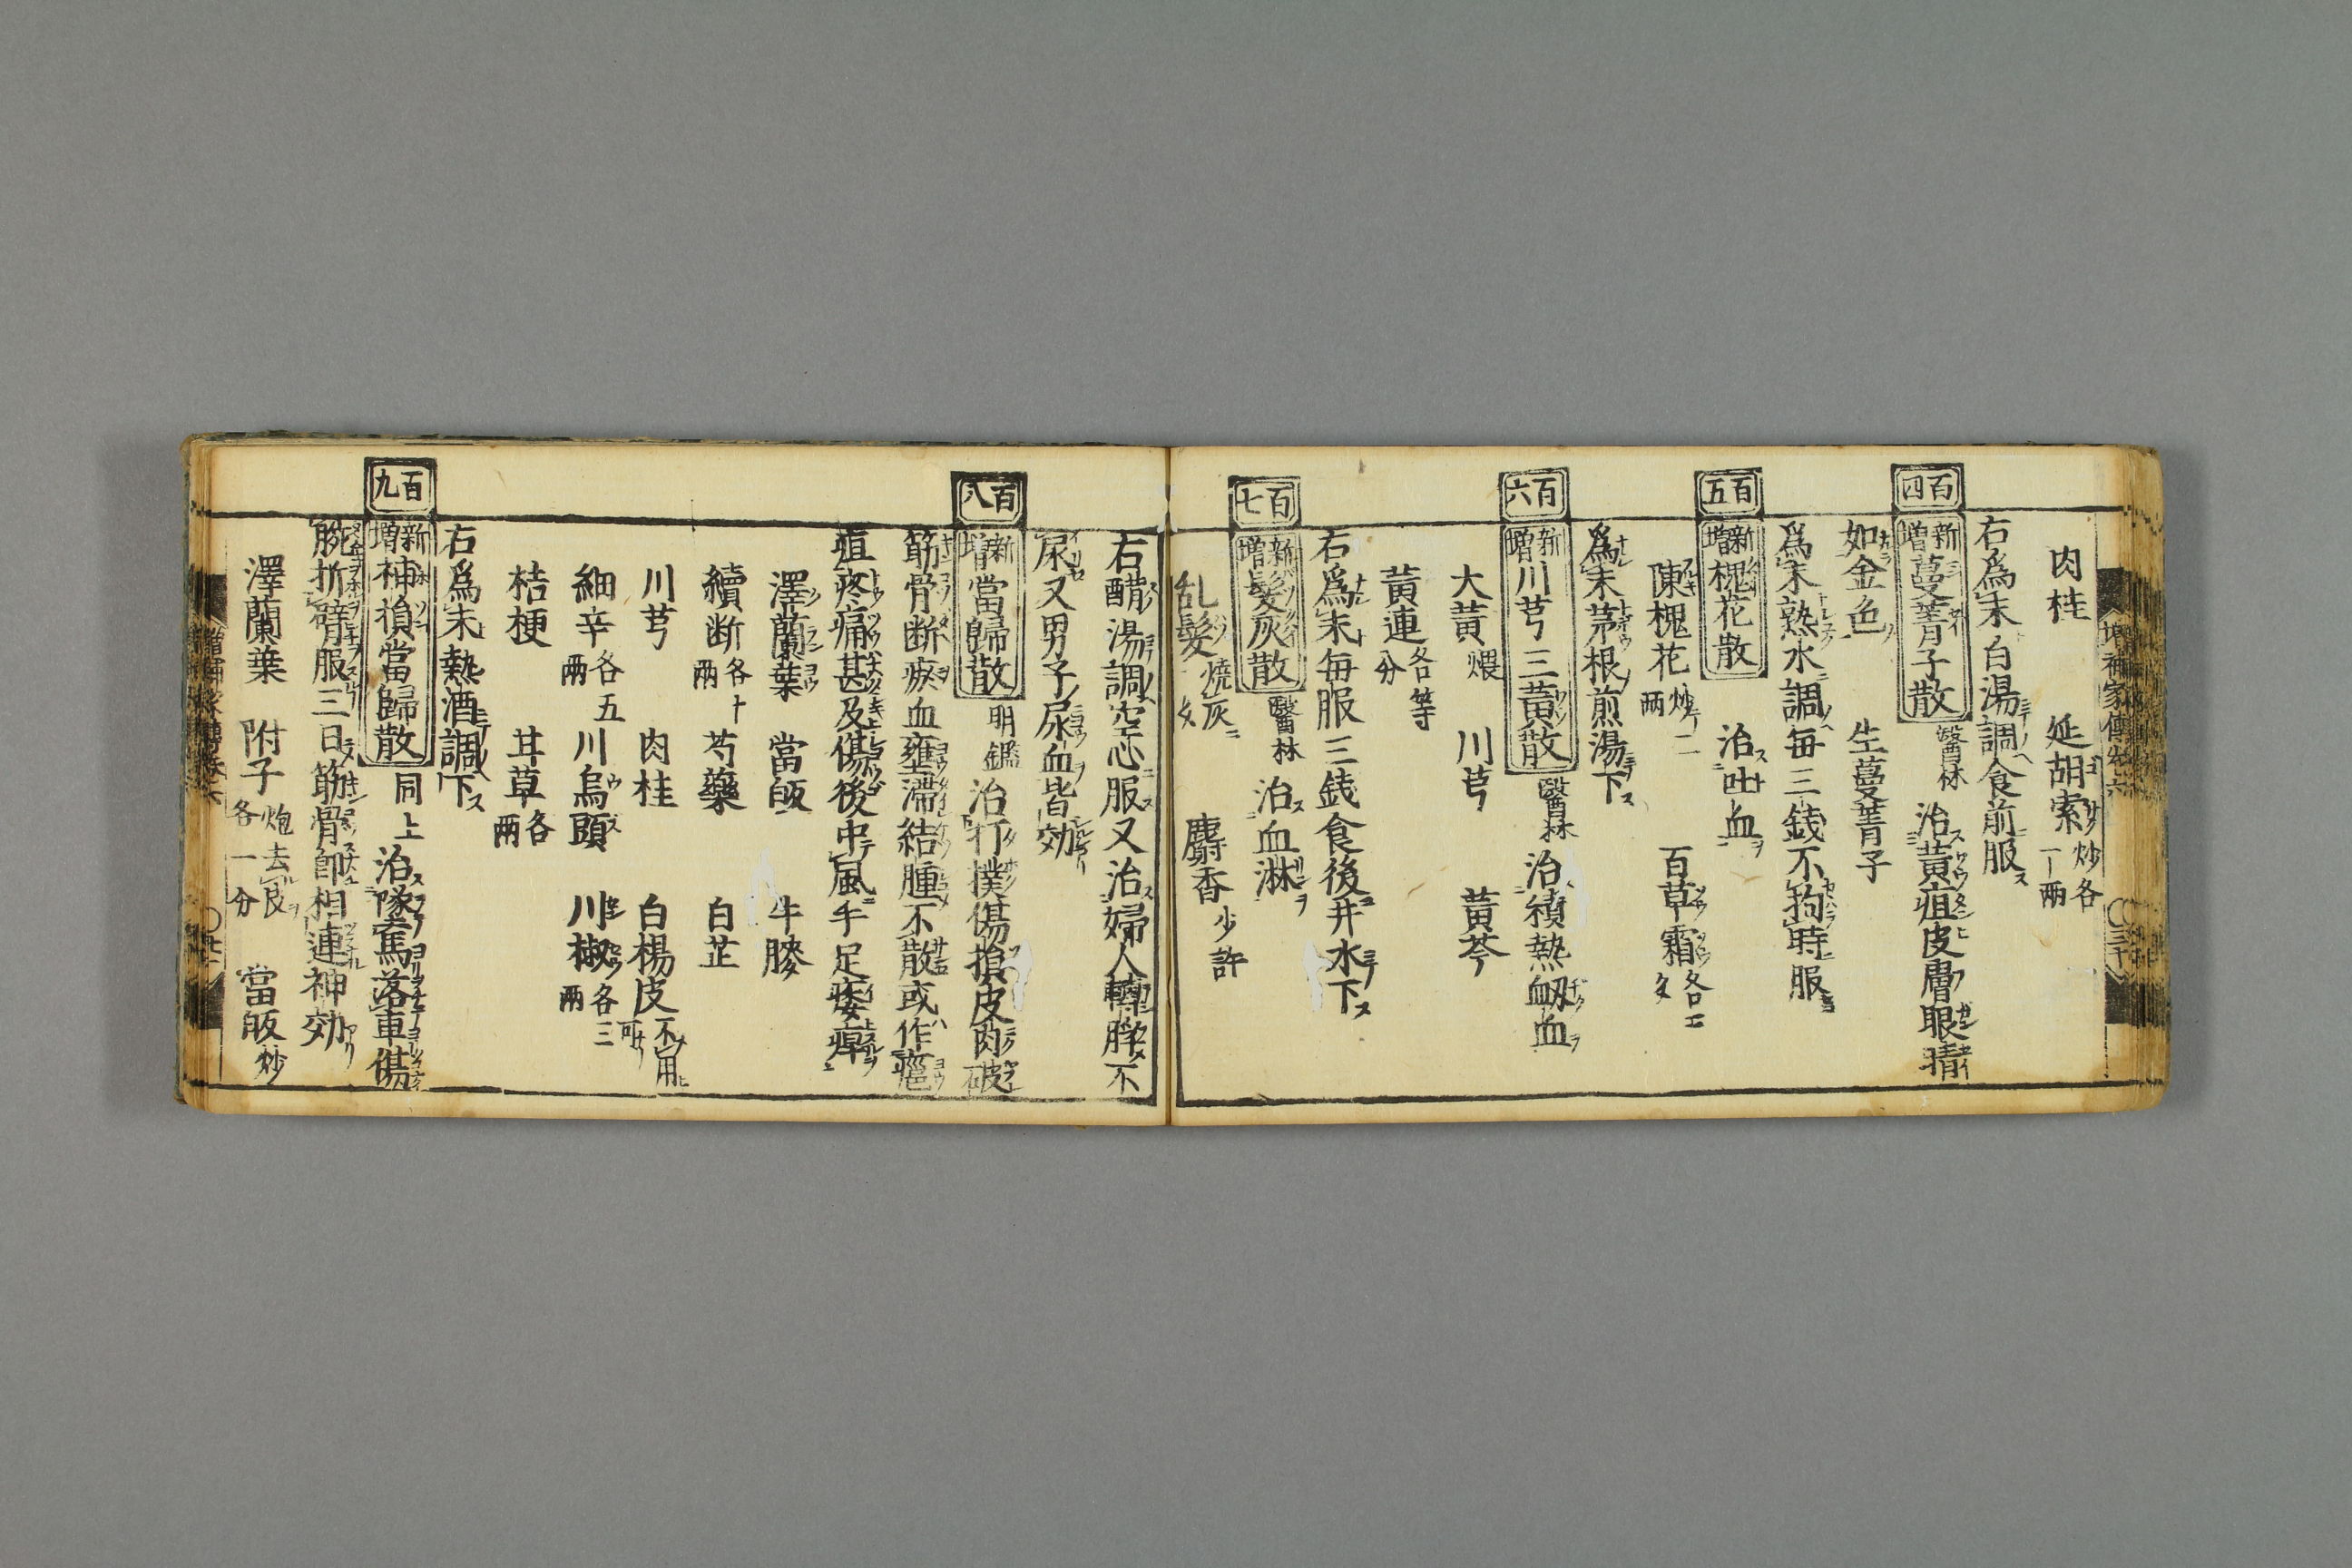 肉桂　延胡索 炒各一両
右為末白湯調食前服
百四
新増 蔓菁子散 醫林 治黄疸皮膚眼睛
如金色　生蔓菁子
為末熟水調毎三銭不拘時服
百五
新増 槐花散　治吐血
陳槐花 炒二両　百草霜
為末茅根煎湯下
百六
新増 川芎三黄散 醫林 治積熱衂血
大黄 煨　川芎　黄芩
黄連 各等分
右為末毎服三銭食後井水下
百七
新増 髮灰散 醫林 治血淋
乱髮 焼灰　麝香 少許
右醋湯調空心服又治婦人轉脬不
尿又男子尿血皆効
百八
新増 當歸散 明鑑 治打撲傷損皮肉破
筋骨断瘀血壅滞結腫不散或作癰
疽疼痛甚及傷後中風手足痿痺
澤蘭葉　當皈　牛膝
續断 各十両　芍藥　白芷
川芎　肉桂　白楊皮 不可用
細辛 各五両　川烏頭　川椒 各三両
桔梗　甘草 各両
右為末熱酒調下
百九
新増 補損當歸散 同上 治墜馬落車傷
腕折臂服三日筋骨即相連神効
澤蘭葉　附子 炮去皮各一分　當皈 炒